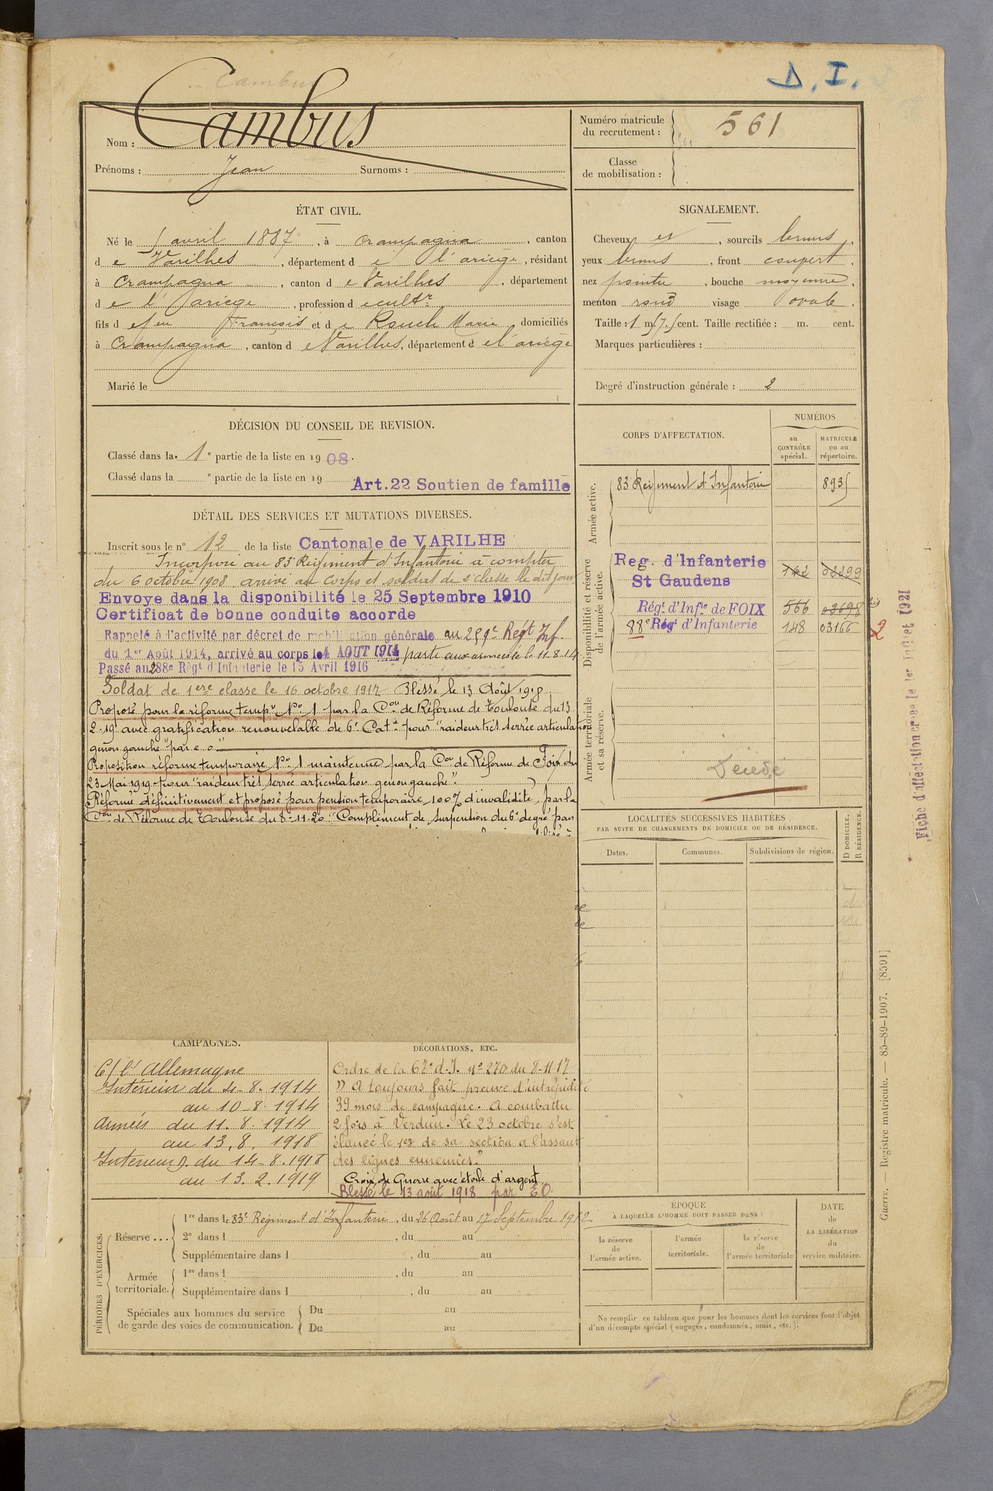 D. I.
Cambus
Nom : Cambus
Prénoms : Jean Surnoms :
Numéro matricule du recrutement : 561
Classe de mobilisation :
ÉTAT CIVIL.
Né le avril 1887, à Crampagna, canton
de Varilhes, département de l'ariège, résidant
à Crampagna, canton de Varilhes, département
de l'ariège, profession de cultr
fils de feu François et de Rouch Marie, domiciliés
à Crampagna, canton de Varilhes, département de l'ariège
Marié le
SIGNALEMENT.
Cheveux et, sourcils bruns,
yeux bruns, front
nez pointu, bouche moyenne,
menton rond visage ovale.
Taille : 1 m. cent. Taille rectifiée : m. cent.
Marques particulières :
Degré d'instruction générale : 2
DÉCISION DU CONSEIL DE REVISION.
Classé dans la 1e partie de la liste en 1908.
Classé dans la e partie de la liste en 19
Art.22 Soutien de famille
DÉTAIL DES SERVICES ET MUTATIONS DIVERSES.
Inscrit sous le n° 12 de la liste Cantonale de VARILHE
Incorporé au 83 Régiment d'Infanterie à compter
du 6 octobre 1908 arrivé au corps et soldat de 2e classe le dit jour
Envoye dans la disponibilité le 25 Septembre 1910
Certificat de bonne conduite accorde
Rappelé à l'activité par décret de mobilisation générale au 259e Regt Inf.
du 1er Août 1914, arrivé au corps le 4 AOUT 1914 parti aux armées le 11-8-14
Passé au 288e Régt d'Infanterie le 15 Avril 1916
Soldat de 1ere classe le 16 octobre 1917 Blessé le 13 Août 1918
Proposé pour la réforme tempre No 1 par la Con de Réforme de Toulouse du 13
2-19 avec gratification renouvelable de 6e Cat. pour "raideur très serrée articulation
genou gauche" par e. o.
Proposition réforme temporaire No 1 maintenue par la Con de Réforme de Foix du
23 Mai 1919 pour "raideur très serrée articulation genou gauche".
Réformé définitivement et proposé pour pension temporaire 100% d'invalidité, par la
Con de Réforme de Toulouse du 8-11-20 "Complément de suspension du 6e degré par
CORPS D'AFFECTATION.
NUMÉROS
au CONTRÔLE spécial.
MATRICULE ou au répertoire.
Armée active.
83 Regiment d'Infanterie 8935
Disponibilité et réserve de l'armée active.
Reg. d'Infanterie St Gaudens 762 02299
Régt. d'Infie de FOIX 566 03698
88e Régt d'Infanterie 148 03166
2
Armée territoriale et sa réserve.
Fiche d'affectation créée le 1er Juillet 1921
LOCALITÉS SUCCESSIVES HABITÉES
PAR SUITE DE CHANGEMENTS DE DOMICILE OU DE RÉSIDENCE.
Dates. Communes. Subdivisions de région. D DOMICILE. R RÉSIDENCE.
CAMPAGNES.
C/ l'Allemagne
Intérieur du 4-8-1914
au 10-8-1914
Armées du 11.8.1914
au 13.8.1918
Intérieur du 14-8-1918
au 13.2.1919
DÉCORATIONS, ETC.
Ordre de la 67e d.I. n° 270 du 8-11-17
"A toujours fait preuve d'intrépidité
39 mois de campagne. A combattu
2 fois à Verdun. Le 23 octobre s'est
élancé le 1er de sa section à l'assaut
des lignes ennemies."
Croix de Guerre avec étoile d'argent
Blessé le 13 août 1918 par E.O.
PÉRIODES D'EXERCICES.
Réserve... 1re dans le 83e Régiment d'Infanterie, du 26 Août au 17 Septembre 1912
2e dans l, du au
Supplémentaire dans l, du au
Armée territoriale. 1re dans l, du au
Supplémentaire dans l, du au
Spéciales aux hommes du service de garde des voies de communication. Du au
Du au
ÉPOQUE
À LAQUELLE L'HOMME DOIT PASSER DANS :
la réserve de l'armée active.
l'armée territoriale.
la réserve de l'armée territoriale
DATE de LA LIBÉRATION du service militaire.
Ne remplir ce tableau que pour les hommes dont les services font l'objet
d'un décompte spécial (engagés, condamnés, omis, etc.).
Guerre. — Registre matricule. — 85-89-1907. [8591]